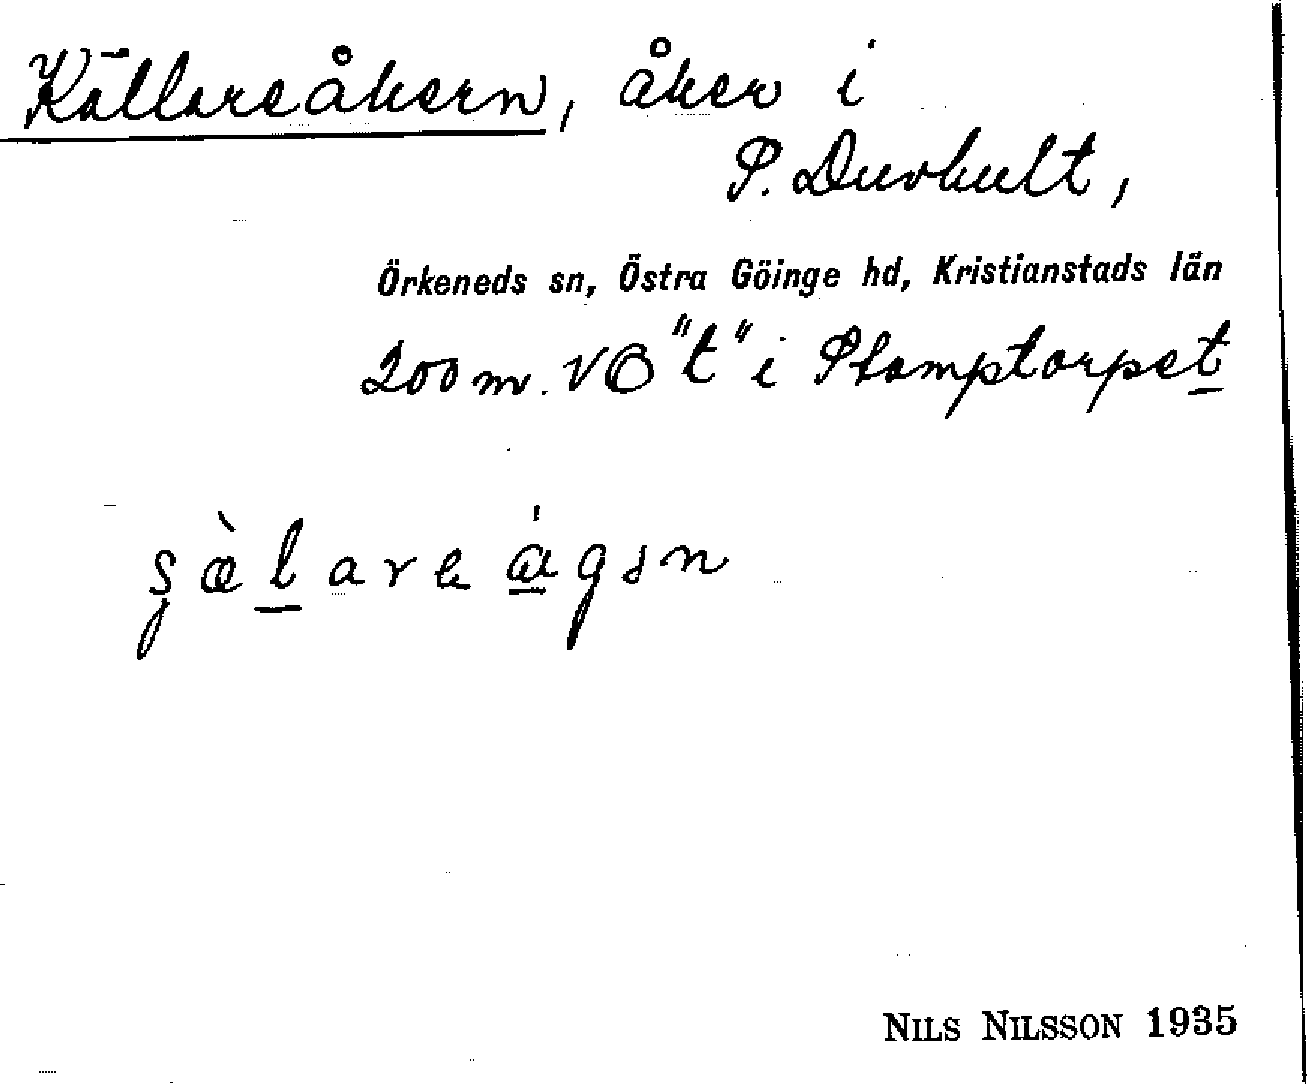 Källareåkern, åker i
S. Duvhult,
Örkeneds sn, Östra Göinge hd, Kristianstads län
200 m. VO "t" i Stamptorpet
NILS NILSSON 1935